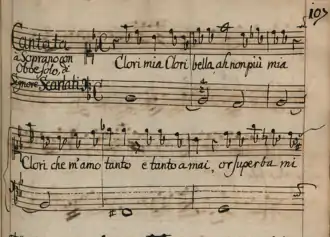 107
Cantata
a Soprano con
Oboe solo, di
Signore Scarlati
Clori mia Clori bella, ah non più mia
Clori che m'amo tanto e tanto amai, or superba mi